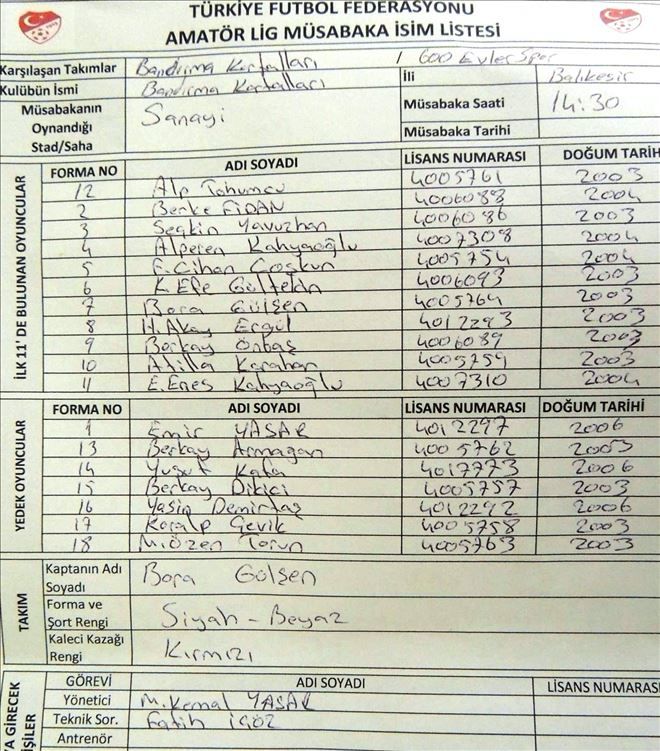 TÜRKİYE FUTBOL FEDERASYONU
AMATÖR LİG MÜSABAKA İSİM LİSTESİ
Karşılaşan Takımlar Bandırma Kartalları / 600 Evler Spor
Kulübün İsmi Bandırma Kartalları İli Balıkesir
Müsabakanın Oynandığı Stad/Saha Sanayi Müsabaka Saati 14:30
Müsabaka Tarihi
İLK 11' DE BULUNAN OYUNCULAR
FORMA NO ADI SOYADI LİSANS NUMARASI DOĞUM TARİH
12 Alp Tohumcu 4005761 2003
2 Berke FİDAN 4006088 2004
3 Seçkin Yavuzhan 4006086 2003
4 Alperen Kahyaoğlu 4007308 2004
5 F.Cihan Coşkun 4005754 2004
6 K.Efe Gültekin 4006093 2003
7 Bora Gülşen 4005764 2003
8 H.Akay Ergül 4012293 2003
9 Berkay Önbaş 4006089 2003
10 Atilla Karahan 4005759 2003
11 E.Enes Kahyaoğlu 4007310 2004
YEDEK OYUNCULAR
FORMA NO ADI SOYADI LİSANS NUMARASI DOĞUM TARİHİ
1 Emir YAŞAR 4012297 2006
13 Berkay Armağan 4005762 2003
14 Yusuf Kafa 4017773 2006
15 Berkay Dikici 4005757 2003
16 Yasin Demirtaş 4012292 2006
17 Koralp Çevik 4005758 2003
18 M.Özen Torun 4005763 2003
TAKIM
Kaptanın Adı Soyadı Bora Gülşen
Forma ve Şort Rengi Siyah - Beyaz
Kaleci Kazağı Rengi Kırmızı
YA GİRECEK
İŞİLER
GÖREVİ ADI SOYADI LİSANS NUMARAS
Yönetici M.Kemal YAŞAR
Teknik Sor. Fatih İGÖZ
Antrenör